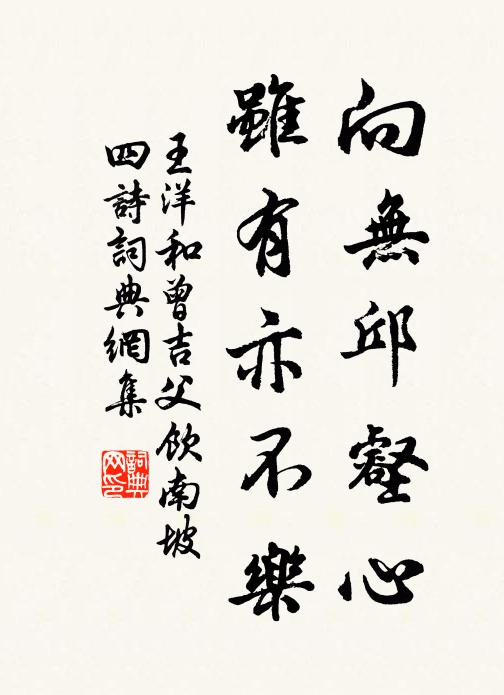 向無邱壑心
雖有亦不樂
王洋和曾吉父飲南坡
四詩詞典網集
詞典网印